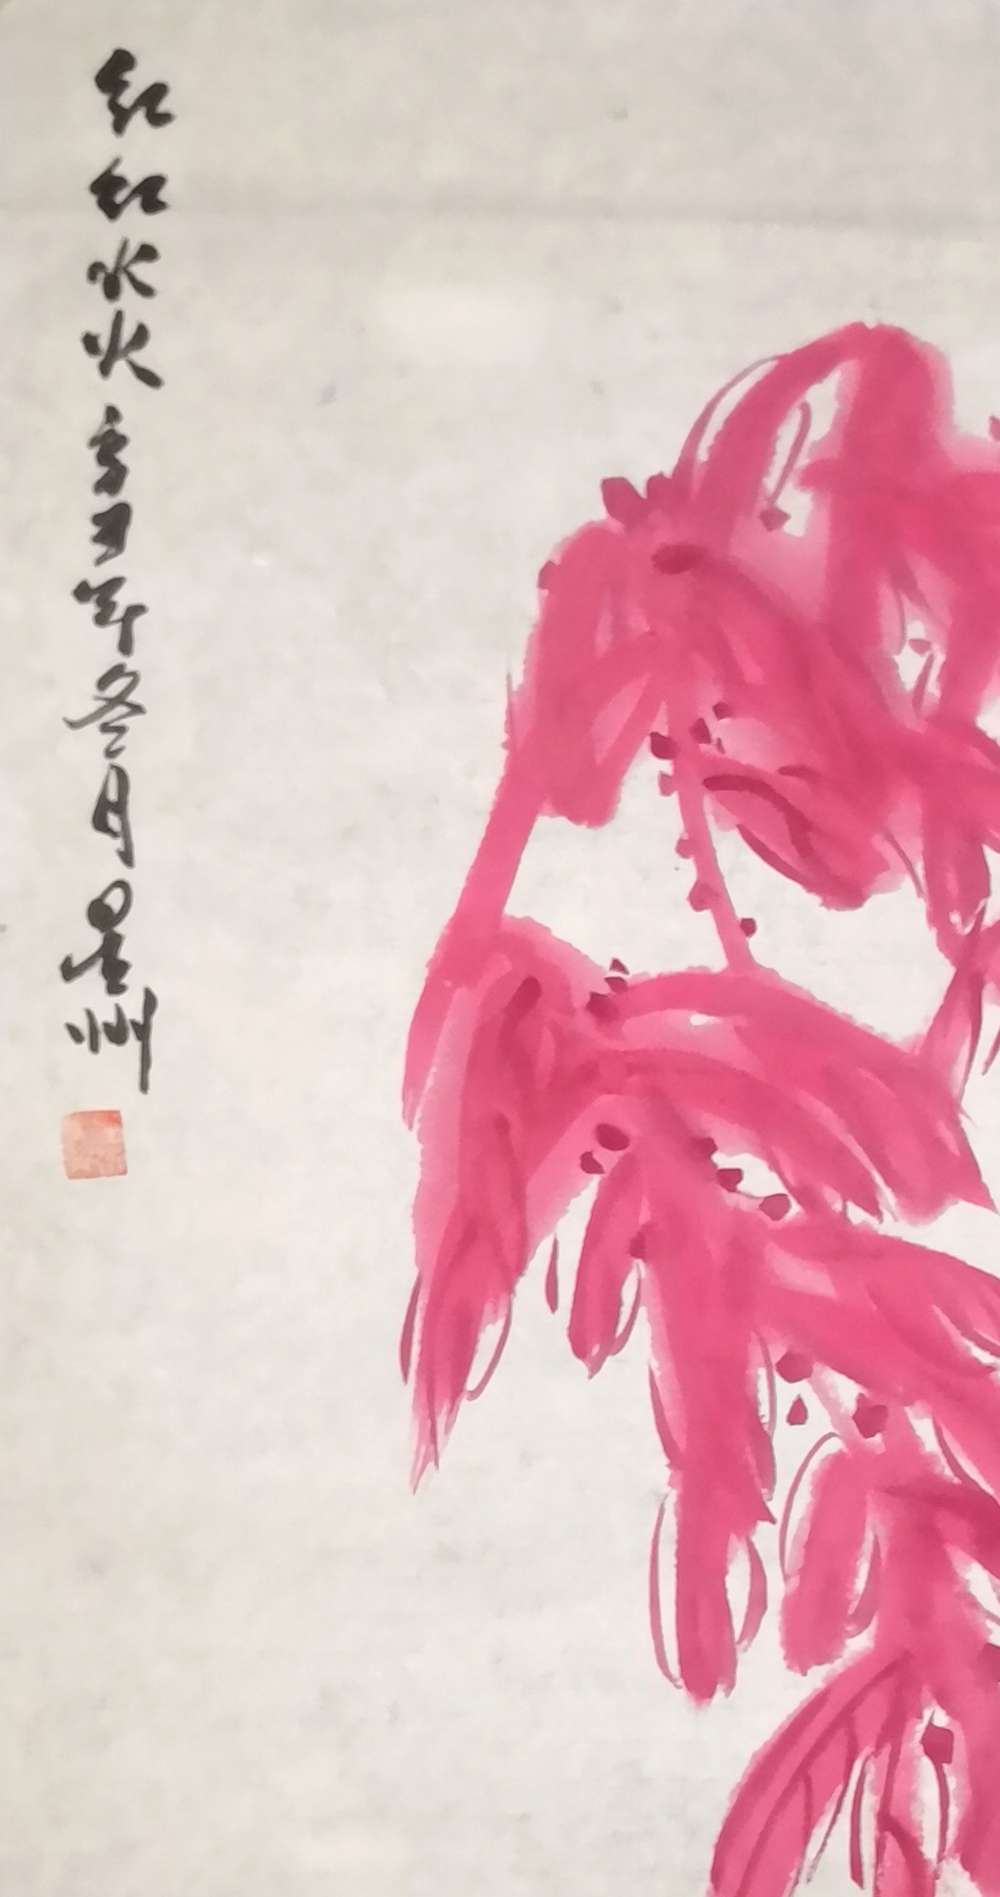 红红火火辛丑年冬月墨州